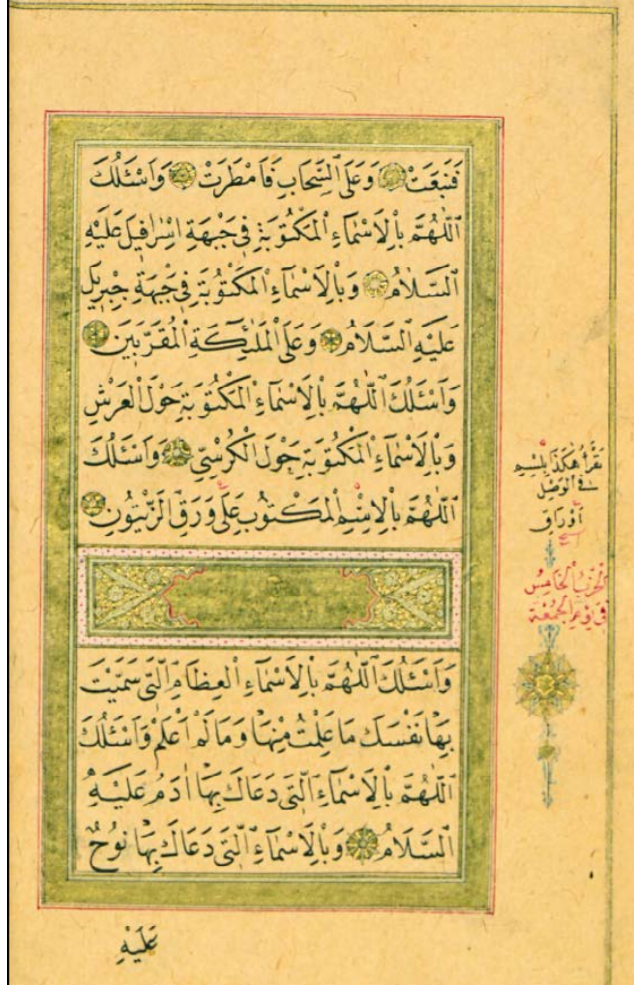 فَنَبَعَتْ وَعَلَى السَّحَابِ فَاَمْطَرَتْ وَاَسْئَلُكَ
اَللّٰهُمَّ بِالْاَسْمَاءِ الْمَكْتُوبَةِ فِى جَبْهَةِ اِسْرَافِيلَ عَلَيْهِ
السَّلَامُ وَبِالْاَسْمَاءِ الْمَكْتُوبَةِ فِى جَبْهَةِ جِبْرِيلَ
عَلَيْهِ السَّلَامُ وَعَلَى الْمَلٰئِكَةِ الْمُقَرَّبِينَ
وَاَسْئَلُكَ اللّٰهُمَّ بِالْاَسْمَاءِ الْمَكْتُوبَةِ حَوْلَ الْعَرْشِ
وَبِالْاَسْمَاءِ الْمَكْتُوبَةِ حَوْلَ الْكُرْسِىِّ وَاَسْئَلُكَ
اَللّٰهُمَّ بِالْاِسْمِ الْمَكْتُوبِ عَلَى وَرَقِ الزَّيْتُونِ
وَاَسْئَلُكَ اللّٰهُمَّ بِالْاَسْمَاءِ الْعِظَامِ الَّتِى سَمَّيْتَ
بِهَا نَفْسَكَ مَا عَلِمْتُ مِنْهَا وَمَا لَمْ اَعْلَمْ وَاَسْئَلُكَ
اَللّٰهُمَّ بِالْاَسْمَاءِ الَّتِى دَعَاكَ بِهَا اٰدَمُ عَلَيْهِ
السَّلَامُ وَبِالْاَسْمَاءِ الَّتِى دَعَاكَ بِهَا نُوحٌ
عَلَيْهِ
تقرأ هكذا بلسم
فى الوصل
اَوْرَاقِ
الحزب الخامس
فى يوم الجمعة